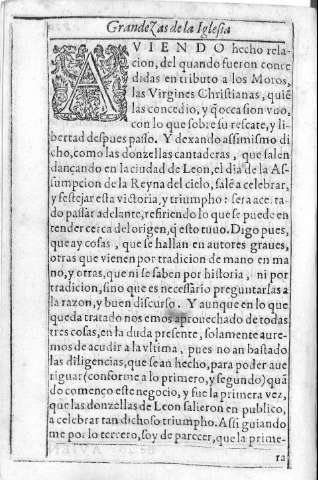 Grandezas de la Iglesia
AVIENDO hecho rela-
cion, del quando fueron conce
didas en tributo a los Moros,
las Virgines Christianas, quiẽ
las concedio, y q̃ occasion vuo,
con lo que sobre su rescate, y li-
bertad despues passo. Y dexando assimismo di
cho, como las donzellas cantaderas, que salen
dançando en la ciudad de Leon, el dia de la As-
sumpcion de la Reyna del cielo, salẽ a celebrar,
y festejar esta victoria, y triumpho: sera aceŕtado
passar adelante, refiriendo lo que se puede en
tender cerca del origen, q̃ esto tuuo. Digo pues,
que ay cosas, que se hallan en autores graues,
otras que vienen por tradicion de mano en ma
no, y otras, que ni se saben por historia, ni por
tradicion, sino que es necessario preguntarlas a
la razon, y buen discurso. Y aunque en lo que
queda tratado nos emos aprouechado de todas
tres cosas, en la duda presente, solamente aure-
mos de acudir a la vltima, pues no an bastado
las diligencias, que se an hecho, para poder aue
riguar (conforme a lo primero, y segundo) quã
do comenco este negocio, y fue la primera vez,
que las donzellas de Leon salieron en publico,
a celebrar tan dichoso triumpho. Assi guiando
me por lo tercero, soy de parecer, que la prime-
ra